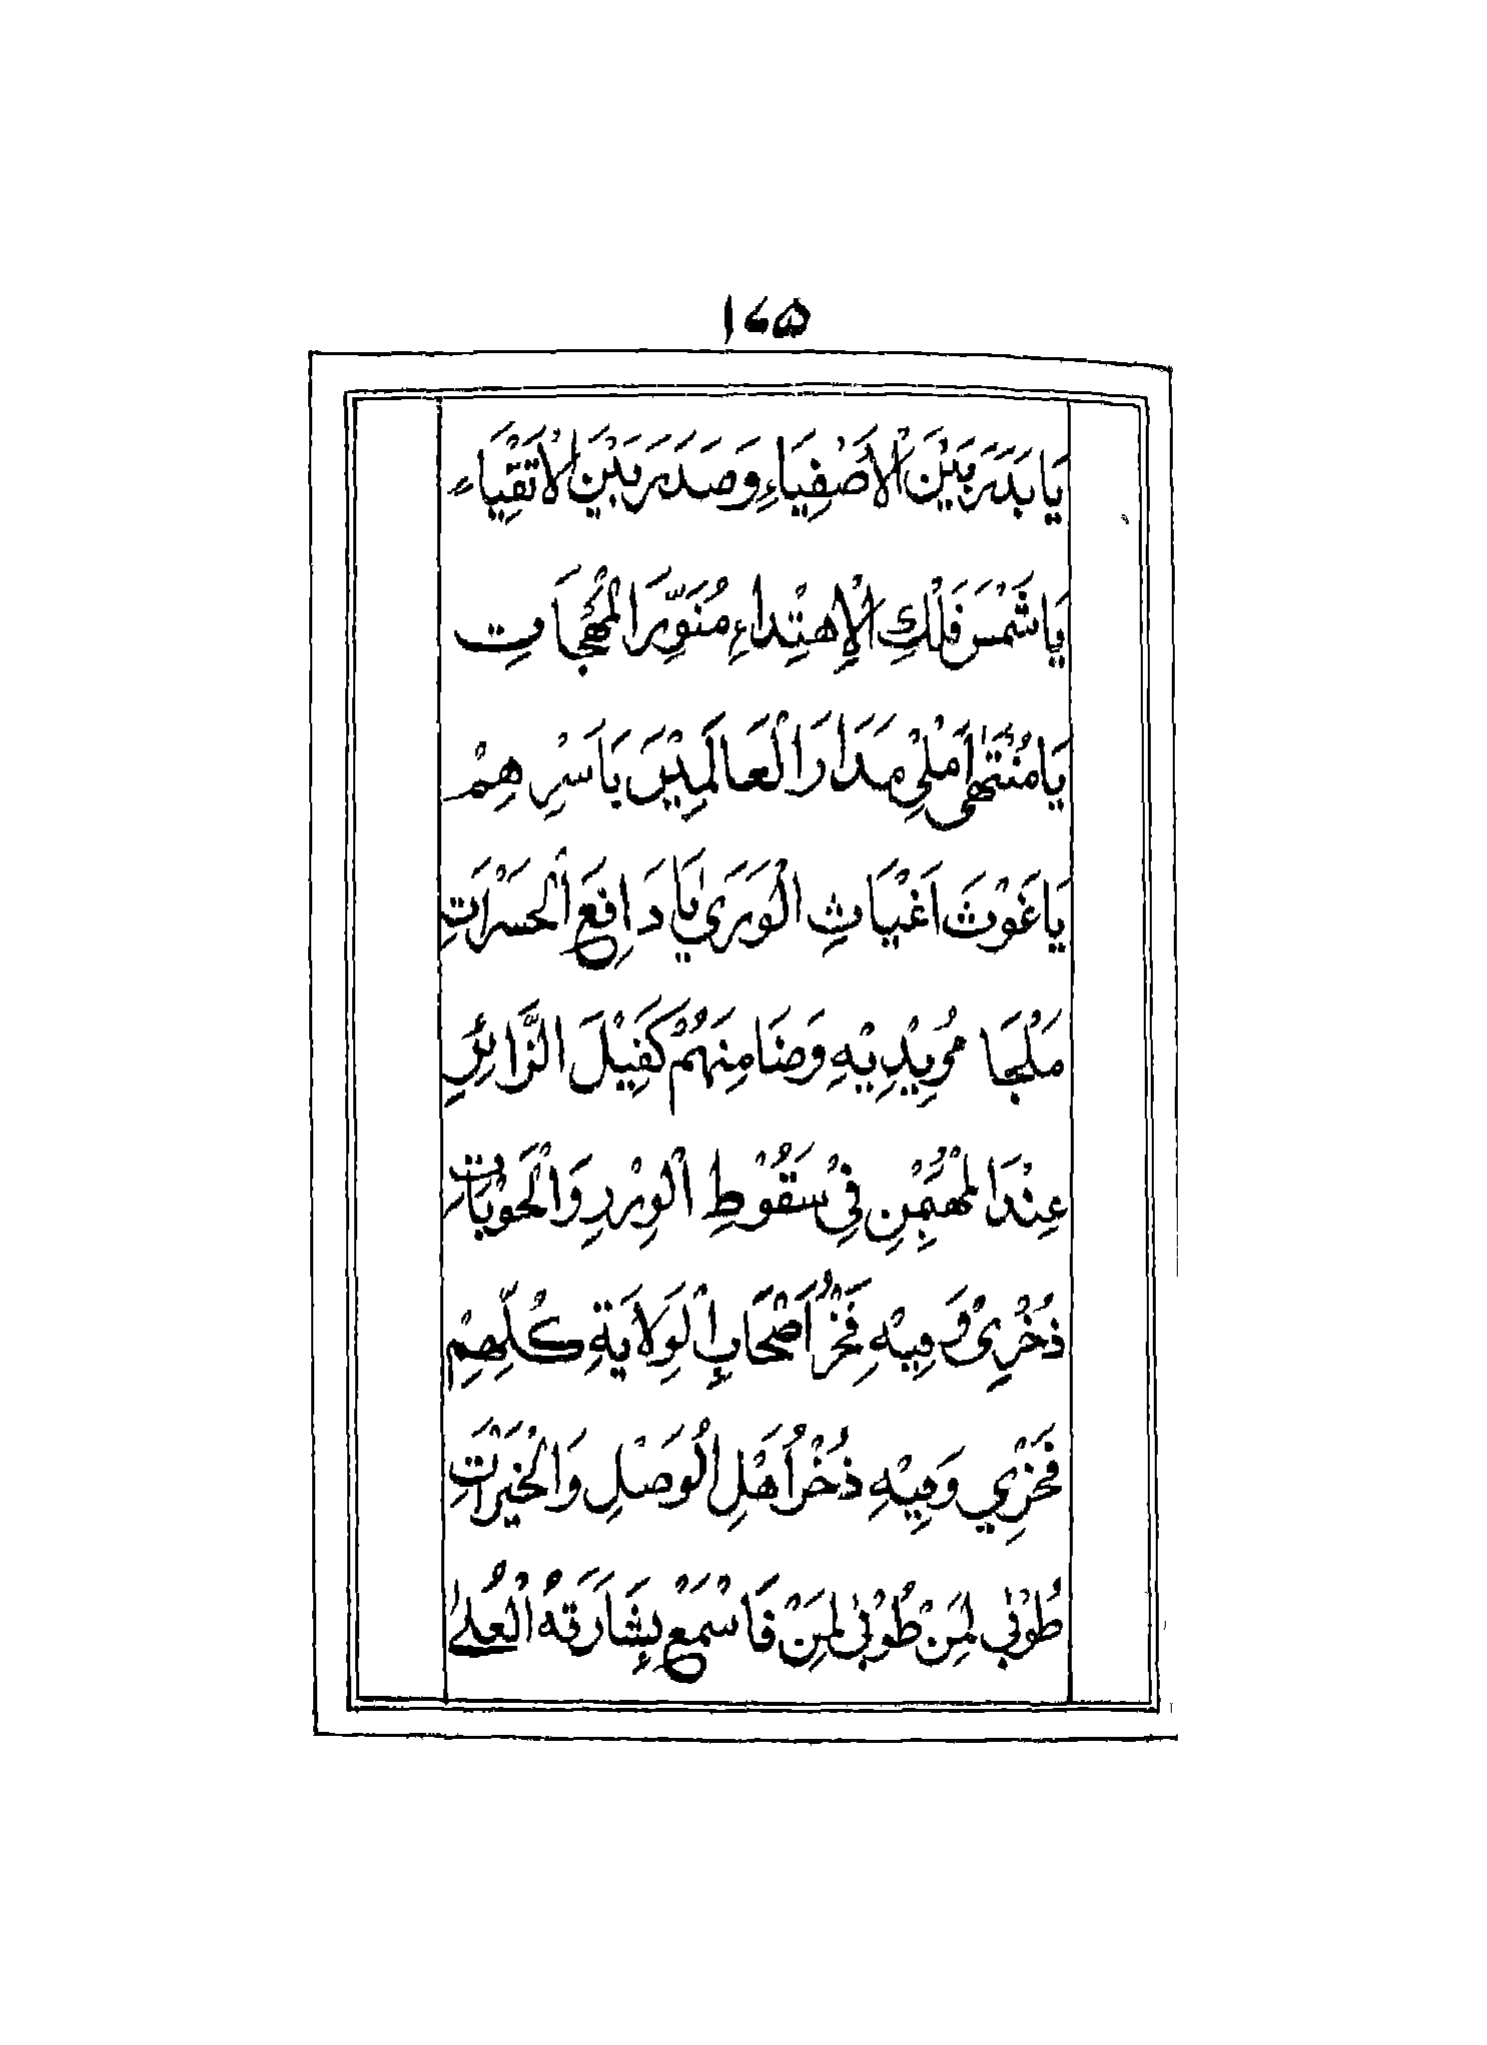 ۱۶۵
يَا بَدَرَ بَيْنَ الْأَصْفِيَاءِ وَصَدَرَ بَيْنَ الْاَتْقِيَاءِ
يَا شَمْسَ فَلْكِ الْاِهْتِدَاءِ مُنَوِّرَ الْمُهْجَاتِ
يَا مُنْتَهٰى اَمَلِيْ مَدَارَ الْعَالَمِيْنَ بِاَسْرِهِمْ
يَا غَوْثَ اَغْيَاثِ الْوَرَي يَا دَافِعَ الْحَسْرَاتِ
مَلْجَا مُرِيْدِيْهِ وَضَامِنَهُمْ كَفِيْلَ الزَّائِرِ
عِنْدَ الْمُهَيْمِنِ فِيْ سَقُوْطِ الْوِزْرِ وَالْحَوْبَاتِ
ذُخْرِيْ وَفِيْهِ فَخْرُ اَصْحَابِ الْوِلَايَةِ كُلِّهِمْ
فَخْرِيْ وَفِيْهِ ذُخْرُ اَهْلِ الْوَصْلِ وَالْخَيْرَاتِ
طُوْبٰى لِمَنْ طُوْبٰى لِمَنْ فَاسْمَعْ بِشَارَتَهُ الْعُلٰى